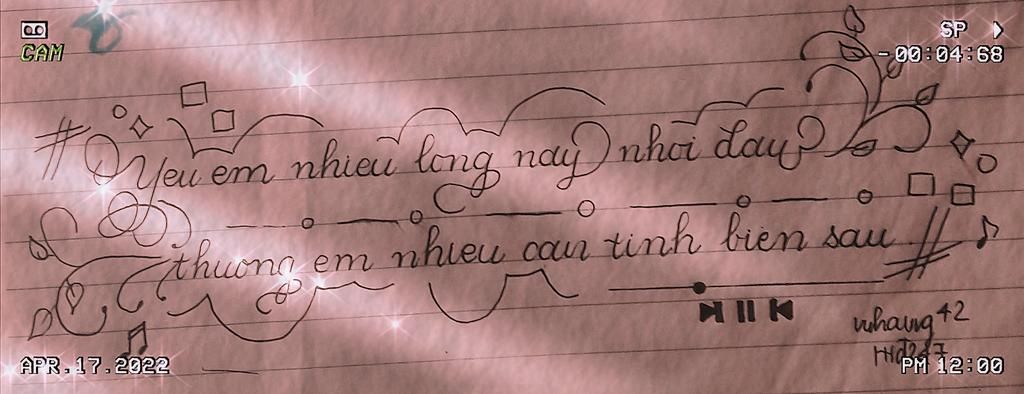 CAM
SP
-00:04:68
Yeu em nhieu long nay nhoi dau
thuong em nhieu cau tinh bien sau
APR.17.2022
PM 12:00